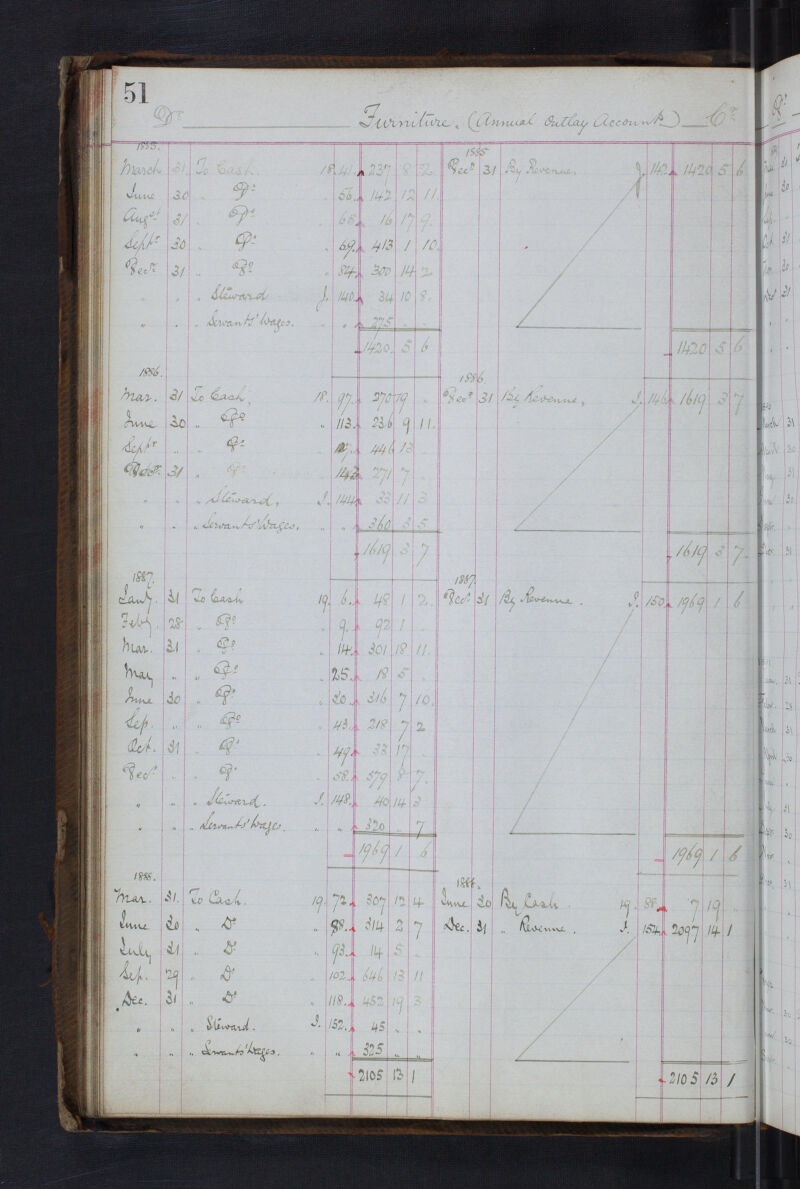 51
Dr Furniture. (Annual Outlay Account) Cr
1885. 1885
March 31 To Cash. 18. 41 237 8 2 Decr 31 By Revenue. J. 142 1420 5 6
June 30 " Do " 56 142 12 11
Augst 31 " Do " 65 16 17 9
Septr 30 " Do " 69 413 1 10
Decr 31 " Do " 84 300 14 2
" " " Steward J. 140 34 10 8
" " " Servants' Wages. " " 275 " "
1420 5 6 1420 5 6
1886. 1886
Mar. 31 To Cash, 18. 97 270 19 " Decr 31 By Revenue, J. 146 1619 3 7
June 30 " Do " 113 236 9 11
Septr " " Do " 446 13 "
31 " Do " 142 271 7 "
" " " Steward, J. 144 33 11 3
" " " Servants' Wages, " " 360 3 5
1619 3 7 1619 3 7
1887. 1887.
Jany. 31 To Cash 19. 6 48 1 2 Decr 31 By Revenue. J. 150 1969 1 6
Feby. 28 " Do " 9 92 1 "
Mar. 31 " Do " 14 301 18 11
May " " Do " 25 18 5 "
June 30 " Do " 30 316 7 10
Sep. " " Do " 43 218 7 2
Oct. 31 " Do " 49 33 17 "
Decr " " Do " 58 579 8 7
" " " Steward. J. 148 40 14 3
" " " Servants' Wages. " " 320 " 7
1969 1 6 1969 1 6
1888. 1888.
Mar. 31. To Cash. 19. 72 307 12 4 June 30 By Cash. 19. 88 7 19 "
June 30 " Do " 88 314 2 7 Dec. 31 " Revenue. J. 154 2097 14 1
July 31 " Do " 93 14 5 "
Sep. 29 " Do " 102 646 13 11
Dec. 31 " Do " 118 452 19 3
" " " Steward. J. 152 45 " "
" " " Servants' Wages. " " 325 " "
2105 13 1 2105 13 1